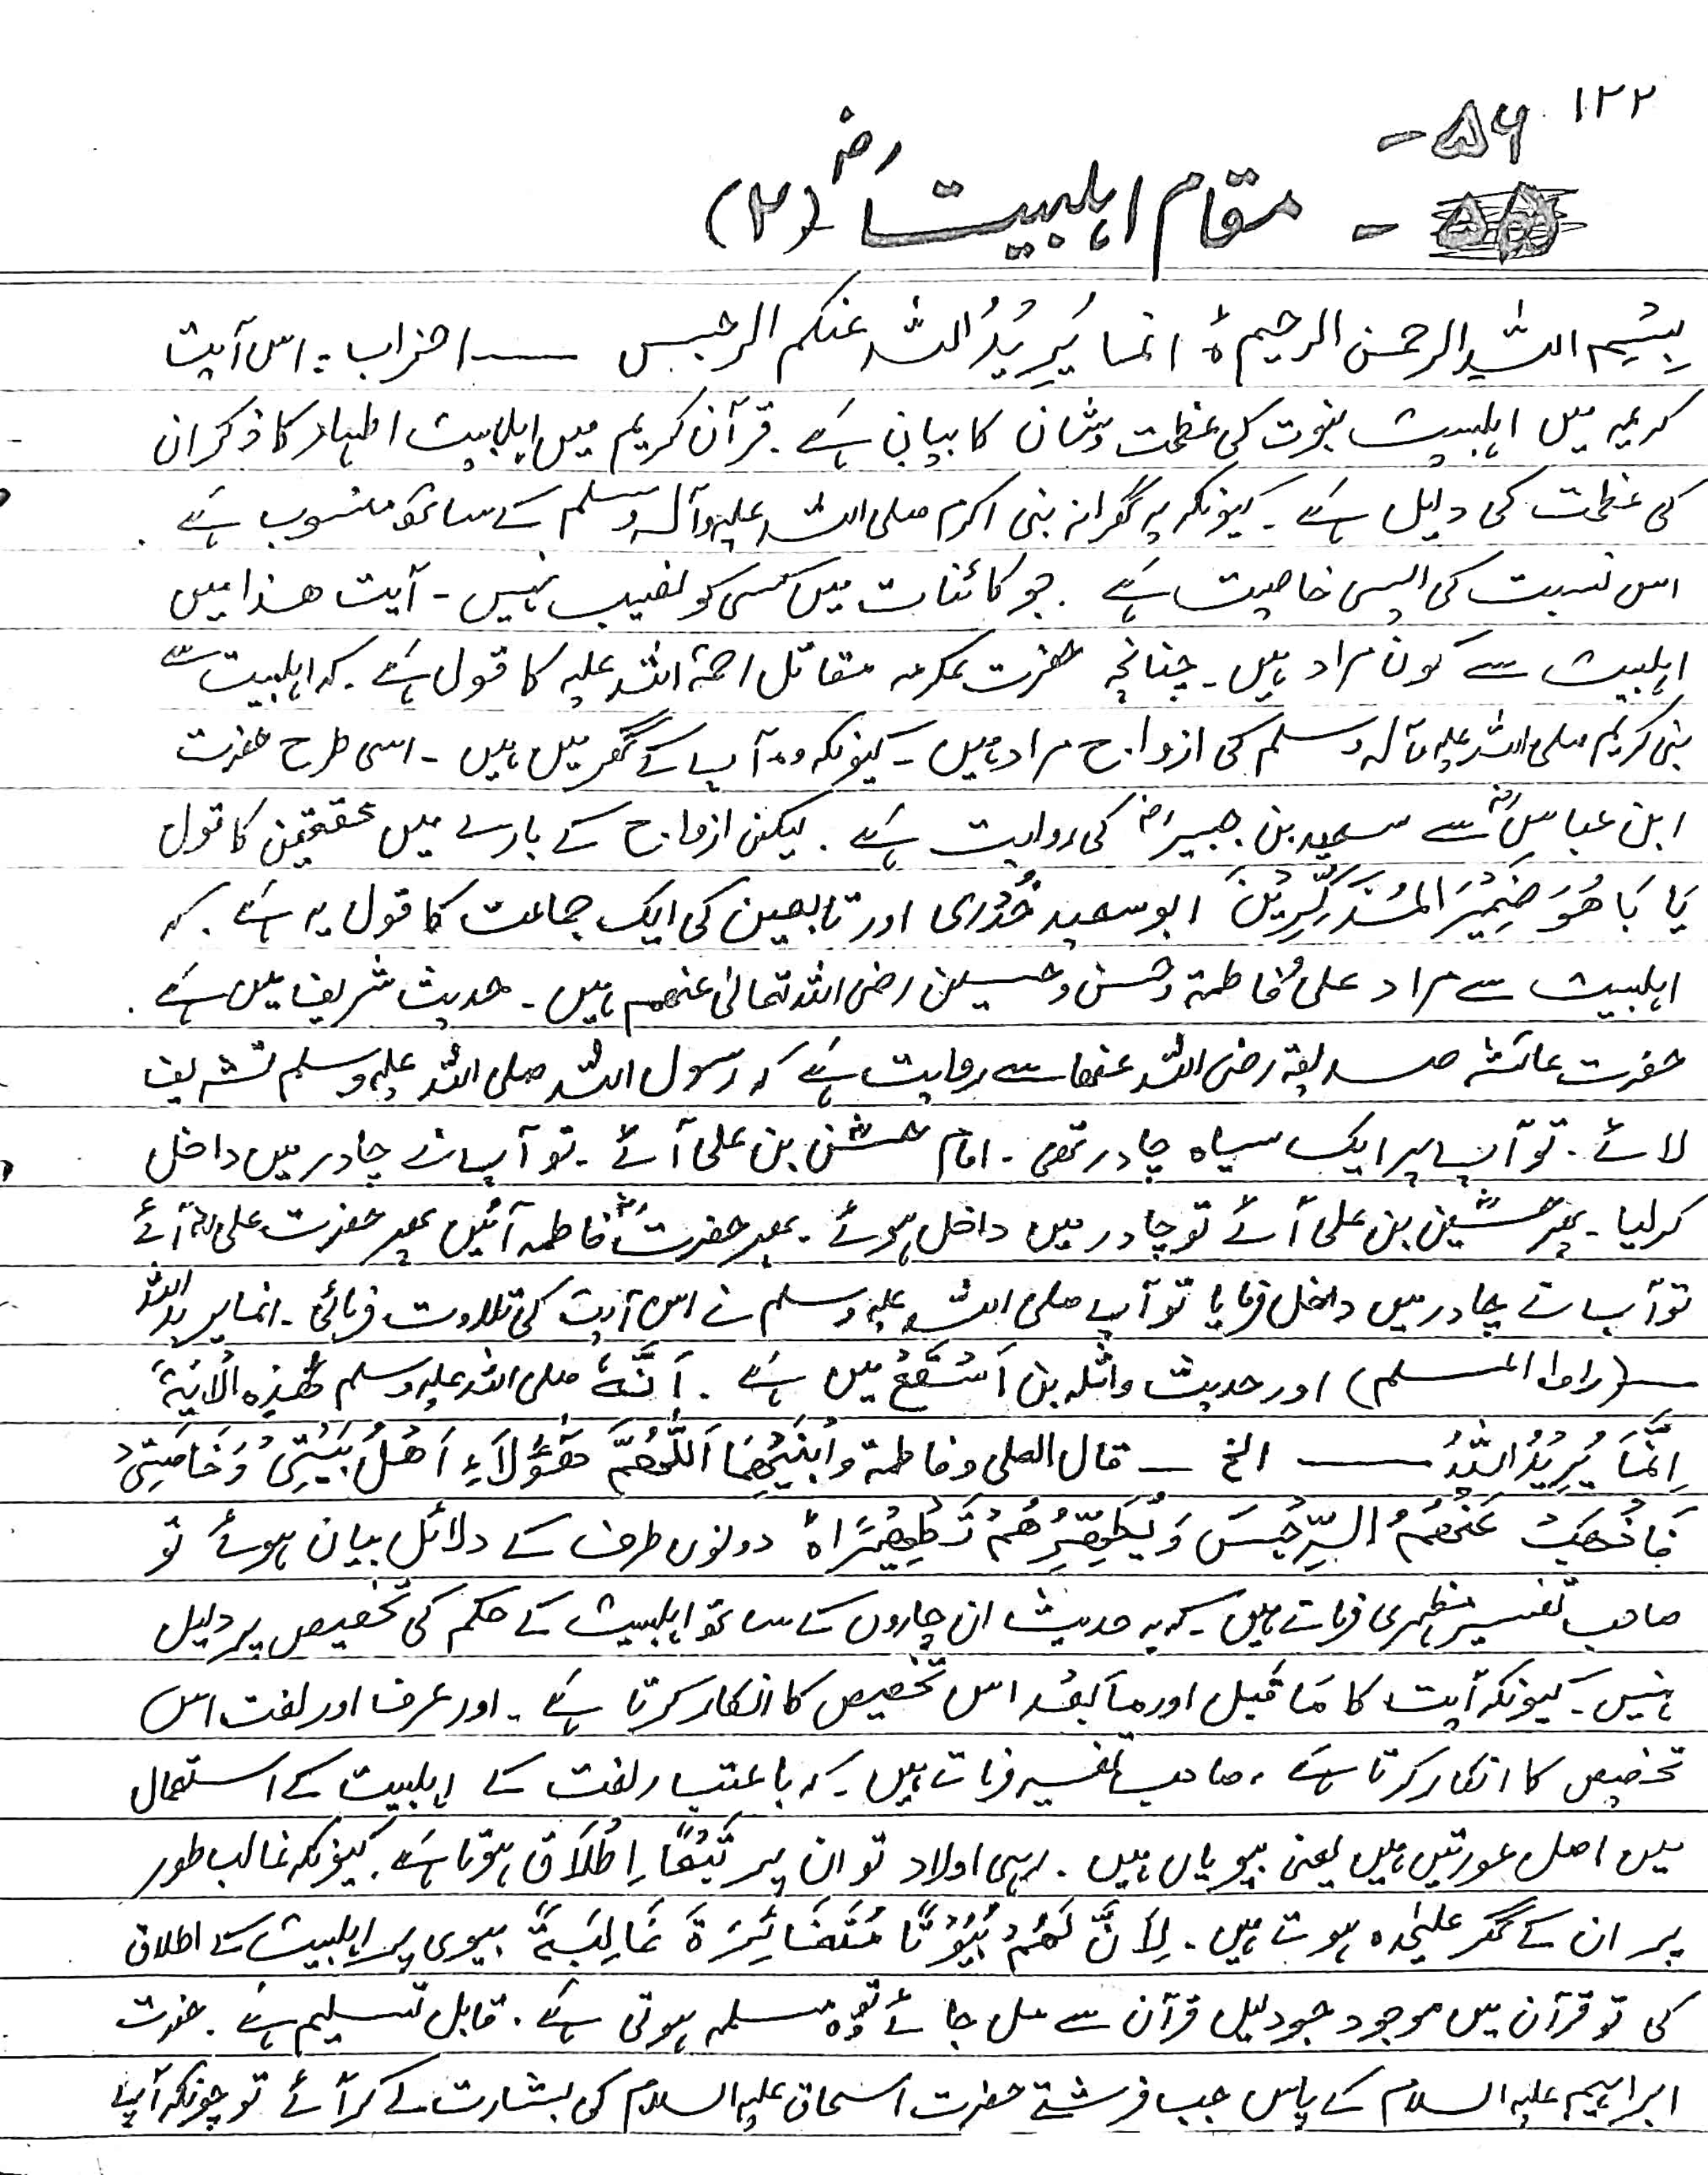 ۱۲۲
۵۶-
مقام اہلبیتؓ (۲)
بِسْمِ اللہ الرحمن الرحیم ہ انما یُرِیْدُ اللہ عنکم الرجس ــــ احزاب :۔ اس آیت
کریمہ میں اہلبیت نبوت کی عظمت و شان کا بیان ہے ۔ قرآن کریم میں اہلبیت اطہار کا ذکر ان
کی عظمت کی دلیل ہے ۔ کیونکہ یہ گھرانہ نبی اکرم صلی اللہ علیہ وآلہ وسلم کے ساتھ منسوب ہے ۔
اس نسبت کی ایسی خاصیت ہے ۔ جو کائنات میں کسی کو نصیب نہیں ۔ آیت ھذا میں
اہلبیت سے کون مراد ہیں ۔ چنانچہ حضرت عکرمہ مقاتل رحمۃ اللہ علیہ کا قول ہے ۔ کہ اہلبیت سے
نبی کریم صلی اللہ علیہ وآلہ وسلم کی ازواج مراد ہیں ۔ کیونکہ وہ آپ کے گھر میں ہیں ۔ اسی طرح حضرت
ابن عباسؓ سے سعید بن جبیرؓ کی روایت ہے ۔ لیکن ازواج کے بارے میں محققین کا قول
ھُوَ ضَمِیْرَ المُذَکَّرِیْنَ ابو سعید خُدْری اور تابعین کی ایک جماعت کا قول یہ ہے ۔ کہ
اہلبیت سے مراد علی و فاطمۃ و حسن و حسین رضی اللہ تعالیٰ عنھم ہیں ۔ حدیث شریف میں ہے ۔
حضرت عائشہ صدیقہ رضی اللہ عنھا سے روایت ہے کہ رسول اللہ صلی اللہ علیہ وسلم تشریف
لائے ۔ تو آپ پر ایک سیاہ چادر تھی ۔ امام حسنؓ بن علی آئے ۔ تو آپ نے چادر میں داخل
کر لیا ۔ پھر حسینؓ بن علی آئے تو چادر میں داخل ہوئے ۔ پھر حضرتؓ فاطمہ آئیں پھر حضرت علیؓ آئے
تو آپ نے چادر میں داخل فرمایا تو آپ صلی اللہ علیہ وسلم نے اس آیت کی تلاوت فرمائی ۔ انما یرید اللہ
ــــ (رواہ المسلم) اور حدیث واثلہ بن اَسْقَعْ میں ہے ۔ اَنَّہٗ صلی اللہ علیہ وسلم ھٰذِہ الْاٰیَۃَ
اِنَّمَا یُرِیْدُ اللّٰہُ ــــ الخ ــ قال العلی و فاطمۃ وابْنَیْھِمَا اَللّٰھُمَّ ھٰؤُلَاءِ اَھْلُ بَیْتِیْ وَخَاصَتِیْ
فَاذْھَبْ عَنْھُمُ الرِّجْسَ وَیُطَھِّرُھُمْ تَطْھِیْرَاہ دونوں طرف کے دلائل بیان ہوئے تو
صاحب تفسیر مظہری فرماتے ہیں ۔ کہ یہ حدیث ان چاروں کے ساتھ اہلبیت کے حکم کی تخصیص پر دلیل
نہیں ۔ کیونکہ آیت کا مَا قَبل اور مَا بَعْد اس تخصیص کا انکار کرتا ہے ۔ اور عرف اور لغت اس
تخصیص کا انکار کرتا ہے ، صاحب تفسیر فرماتے ہیں ۔ کہ باعتبار لغت کے اہلبیت کے استعمال
میں اصل عورتیں ہیں یعنی بیویاں ہیں ۔ رہی اولاد تو ان پر تَبْعًا اِطْلَاق ہوتا ہے ۔ کیونکہ غالب طور
پر ان کے گھر علیٰحدہ ہوتے ہیں ۔ لِاَنَّ لَھُمْ بُیُوْتًا مُتَغَائِرَۃً غَالِبَۃً بیوی پر اہلبیت کے اطلاق
کی تو قرآن میں موجود جو دلیل قرآن سے مل جائے تو وہ مسلمہ ہوتی ہے ۔ قابل تسلیم ہے ۔ حضرت
ابراہیم علیہ السلام کے پاس جب فرشتے حضرت اسحاق علیہ السلام کی بشارت لے کر آئے تو چونکہ آپ